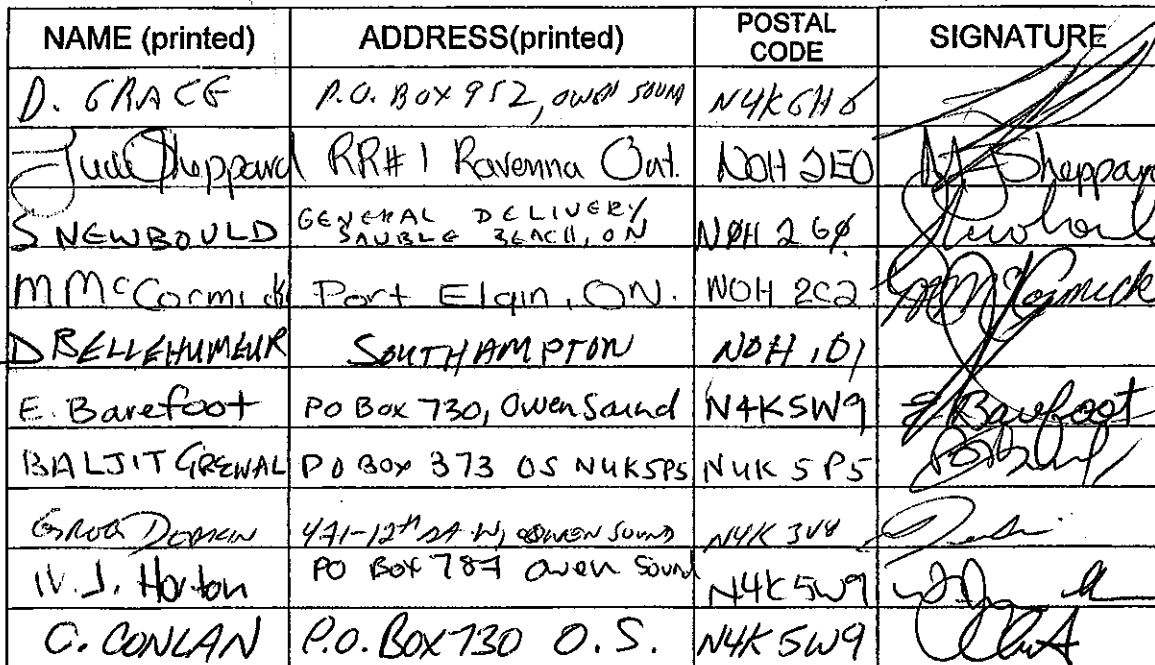 NAME (printed) ADDRESS(printed) POSTAL CODE SIGNATURE
D. GRACE P.O. BOX 952, OWEN SOUND N4K6H6
Judi Sheppard RR#1 Ravenna Ont. N0H 2E0 Sheppard
S NEWBOULD GENERAL DELIVERY SAUBLE BEACH, ON NØH 2GØ
M McCormick Port Elgin, ON. N0H 2C2 McCormick
D BELLEHUMEUR SOUTHAMPTON
E. Barefoot PO Box 730, Owen Sound N4K5W9 E Barefoot
BALJIT GREWAL PO BOX 373 OS N4K5P5 N4K 5P5
471-12th OWEN SOUND N4K 3V8
Horton PO Box 787 Owen Sound N4K5W9
C. CONLAN P.O. BOX 730 O.S. N4K 5W9